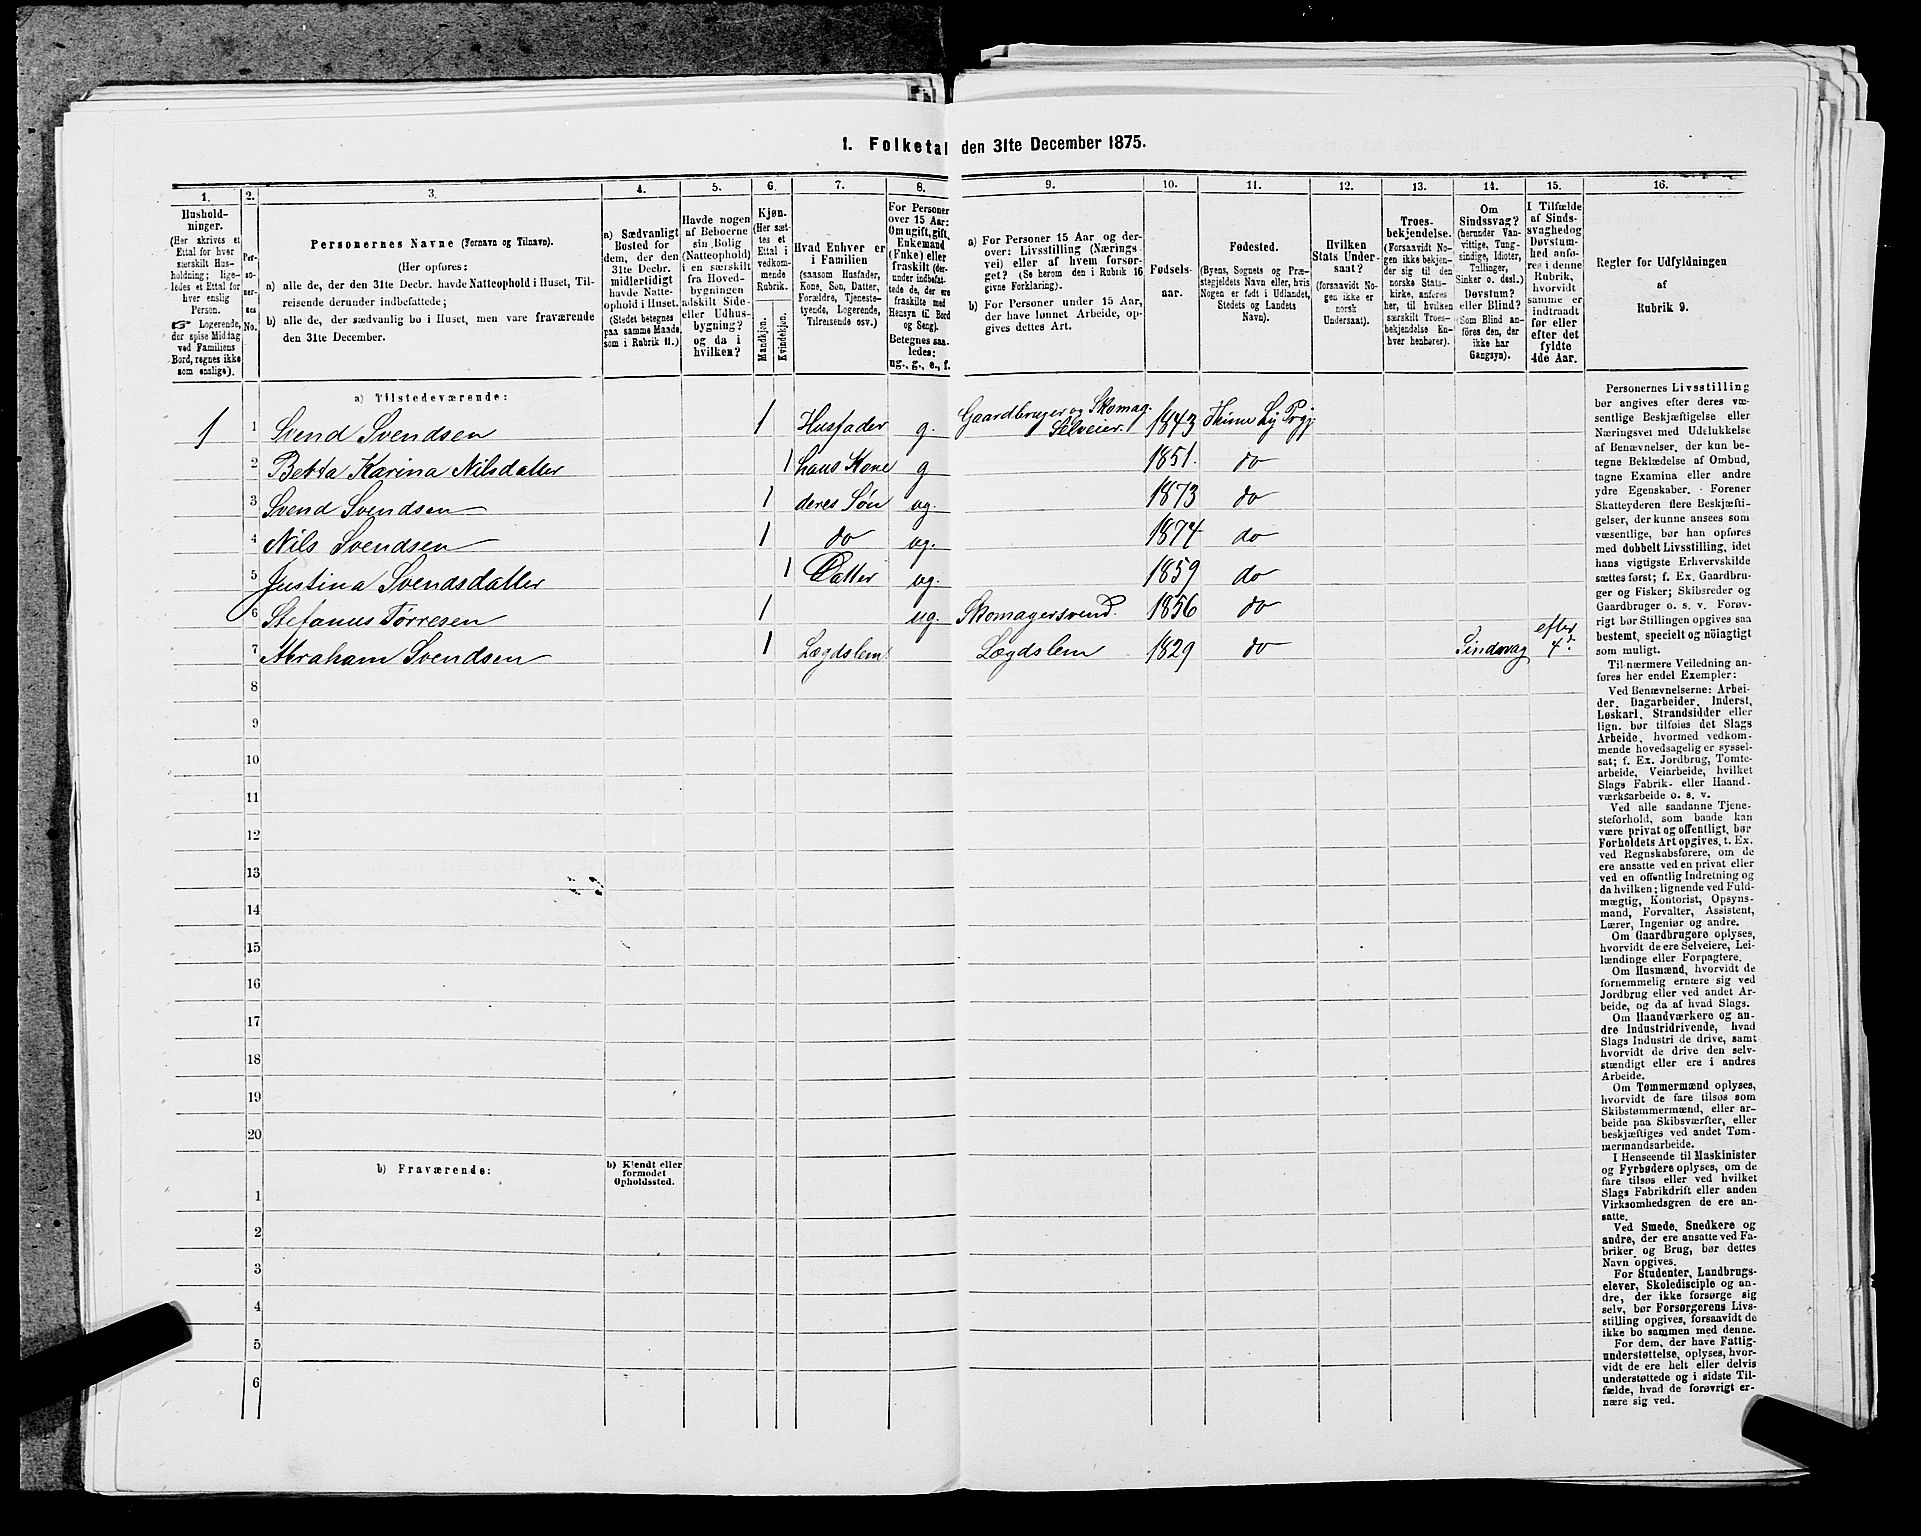 1. Folketal den 31te December 1875.
1. 2. 3. 4. 5. 6. 7. 8. 9. 10. 11. 12. 13. 14. 15. 16.
Hushold-
ninger.
(Her skrives et
Ettal for hver
særskilt Hus-
holdning; lige-
ledes et Ettal for
hver enslig
Person.
☞ Logerende,
der spise Middag
ved Familiens
Bord, regnes ikke
som enslige).
Per-
so-
ner-
nes
No.
Personernes Navne (Fornavn og Tilnavn).
(Her opføres:
a) alle de, der den 31te Decbr. havde Natteophold i Huset, Til-
reisende derunder indbefattede;
b) alle de, der sædvanlig bo i Huset, men vare fraværende
den 31te December.
a) Sædvanligt
Bosted for
dem, der den
31te Decbr.
midlertidigt
havde Natte-
ophold i Huset.
(Stedet betegnes
paa samme Maade,
som i Rubrik 11.)
Havde nogen
af Beboerne
sin Bolig
(Natteophold)
i en særskilt
fra Hoved-
bygningen
adskilt Side-
eller Udhus-
bygning?
og da i
hvilken?
Kjøn.
(Her sæt-
tes et
Ettal i
vedkom-
mende
Rubrik.
Mandkjøn.
Kvindekjøn.
Hvad Enhver er
i Familien
(saasom Husfader,
Kone, Søn, Datter,
Forældre, Tjeneste-
tyende, Logerende,
Tilreisende osv.)
For Personer
over 15 Aar:
Om ugift, gift,
Enkemand
(Enke) eller
fraskilt (der-
under indbefat-
tede de, der ere
fraskilte med
Hensyn til Bord
og Seng).
Betegnes saa-
ledes:
ug., g., e., f.
a) For Personer 15 Aar og der-
over: Livsstilling (Nærings-
vei) eller af hvem forsør-
get? (Se herom den i Rubrik 16
givne Forklaring).
b) For Personer under 15 Aar,
der have lønnet Arbeide, op-
gives dettes Art.
Fødsels-
aar.
Fødested.
(Byens, Sognets og Præ-
stegjeldets Navn eller, hvis
Nogen er født i Udlandet,
Stedets og Landets
Navn).
Hvilken
Stats Under-
saat?
(forsaavidt No-
gen ikke er
norsk
Undersaat).
Troes-
bekjendelse.
(Forsaavidt No-
gen ikke bekjen-
der sig til den
norske Stats-
kirke, anføres
her, til hvilken
særskilt Troes-
bekjendelse En-
hver henhører).
Om
Sindssvag?
(herunder Van-
vittige, Tung-
sindige, Idioter,
Tullinger,
Sinker o. desl.)
Døvstum?
eller Blind?
(Som Blind an-
føres den, der
ikke har
Gangsyn).
I Tilfælde
af Sinds-
svaghed og
Døvstum-
hed anfø-
res i denne
Rubrik,
hvorvidt
samme er
indtraadt
før eller
efter det
fyldte
4de Aar.
Regler for Udfyldningen
af
Rubrik 9.
a) Tilstedeværende:
1 1 Svend Svendsen 1 Husfader g. Gaardbruger og Skomag. Selveier. 1843 Thime Ly Prgj
2 Betta Karina Nilsdatter 1 hans Kone g 1851. do
3 Svend Svendsen 1 deres Søn ug. 1873 do
4 Nils Svendsen 1 do ug. 1874 do
5 Justina Svendsdatter 1 Datter ug. 1859 do
6 Stefanus Tørresen 1 ug. Skomagersvend. 1856 do
7 Abraham Svendsen 1 Lægdslem Lægdslem 1829 do Sindsvag efter 4de
8
9
10
11
12
13
14
15
16
17
18
19
20
b) Fraværende:
b) Kjendt eller
formodet
Opholdssted.
1
2
3
4
5
6
Personernes Livsstilling
bør angives efter deres væ-
sentlige Beskjæftigelse eller
Næringsvei med Udelukkelse
af Benævnelser, der kun be-
tegne Beklædelse af Ombud,
tagne Examina eller andre
ydre Egenskaber. Forener
Skatteyderen flere Beskjæfti-
gelser, der kunne ansees som
væsentlige, bør han opføres
med dobbelt Livsstilling, idet
hans vigtigste Erhvervskilde
sættes først; f. Ex. Gaardbru-
ger og Fisker; Skibsreder og
Gaardbruger o. s. v. Forøv-
rigt bør Stillingen opgives saa
bestemt, specielt og nöiagtigt
som muligt.
Til nærmere Veiledning an-
føres her endel Exempler:
Ved Benævnelserne: Arbei-
der, Dagarbeider, Inderst,
Løskarl, Strandsidder eller
lign. bør tilføies det Slags
Arbeide, hvormed vedkom-
mende hovedsagelig er syssel-
sat; f. Ex. Jordbrug, Tomte-
arbeide, Veiarbeide, hvilket
Slags Fabrik- eller Haand-
værksarbeide o. s. v.
Ved alle saadanne Tjene-
steforhold, som baade kan
være privat og offentligt, bør
Forholdets Art opgives, t. Ex.
ved Regnskabsførere, om de
ere ansatte ved en privat eller
ved en offentlig Indretning og
da hvilken; lignende ved Fuld-
mægtig, Kontorist, Opsyns-
mand, Forvalter, Assistent,
Lærer, Ingeniør og andre.
Om Gaardbrugere oplyses,
hvorvidt de ere Selveiere, Lei-
lændinge eller Forpagtere.
Om Husmænd, hvorvidt de
fornemmelig ernære sig ved
Jordbrug eller ved andet Ar-
beide, og da af hvad Slags.
Om Haandværkere og an-
dre Industridrivende, hvad
Slags Industri de drive, samt
hvorvidt de drive den selv-
stændigt eller ere i andres
Arbeide.
Om Tømmermænd oplyses,
hvorvidt de fare tilsøs som
Skibstømmermænd, eller ar-
beide paa Skibsværfter, eller
beskjæftiges ved andet Tøm-
mermandsarbeide.
I Henseende til Maskinister
og Fyrbødere oplyses, om de
fare tilsøs eller ved hvilket
Slags Fabrikdrift eller anden
Virksomhedsgren de ere an-
satte.
Ved Smede, Snedkere og
andre, der ere ansatte ved Fa-
briker og Brug, bør dettes
Navn opgives.
For Studenter, Landbrugs-
elever, Skoledisciple og an-
dre, der ikke forsørge sig
selv, bør Forsørgerens Livs-
stilling opgives, forsaavidt de
ikke bo sammen med denne.
For dem, der have Fattig-
understøttelse, oplyses, hvor-
vidt de ere helt eller delvis
understøttede og i sidste Til-
fælde, hvad de forøvrigt er-
nære sig ved.